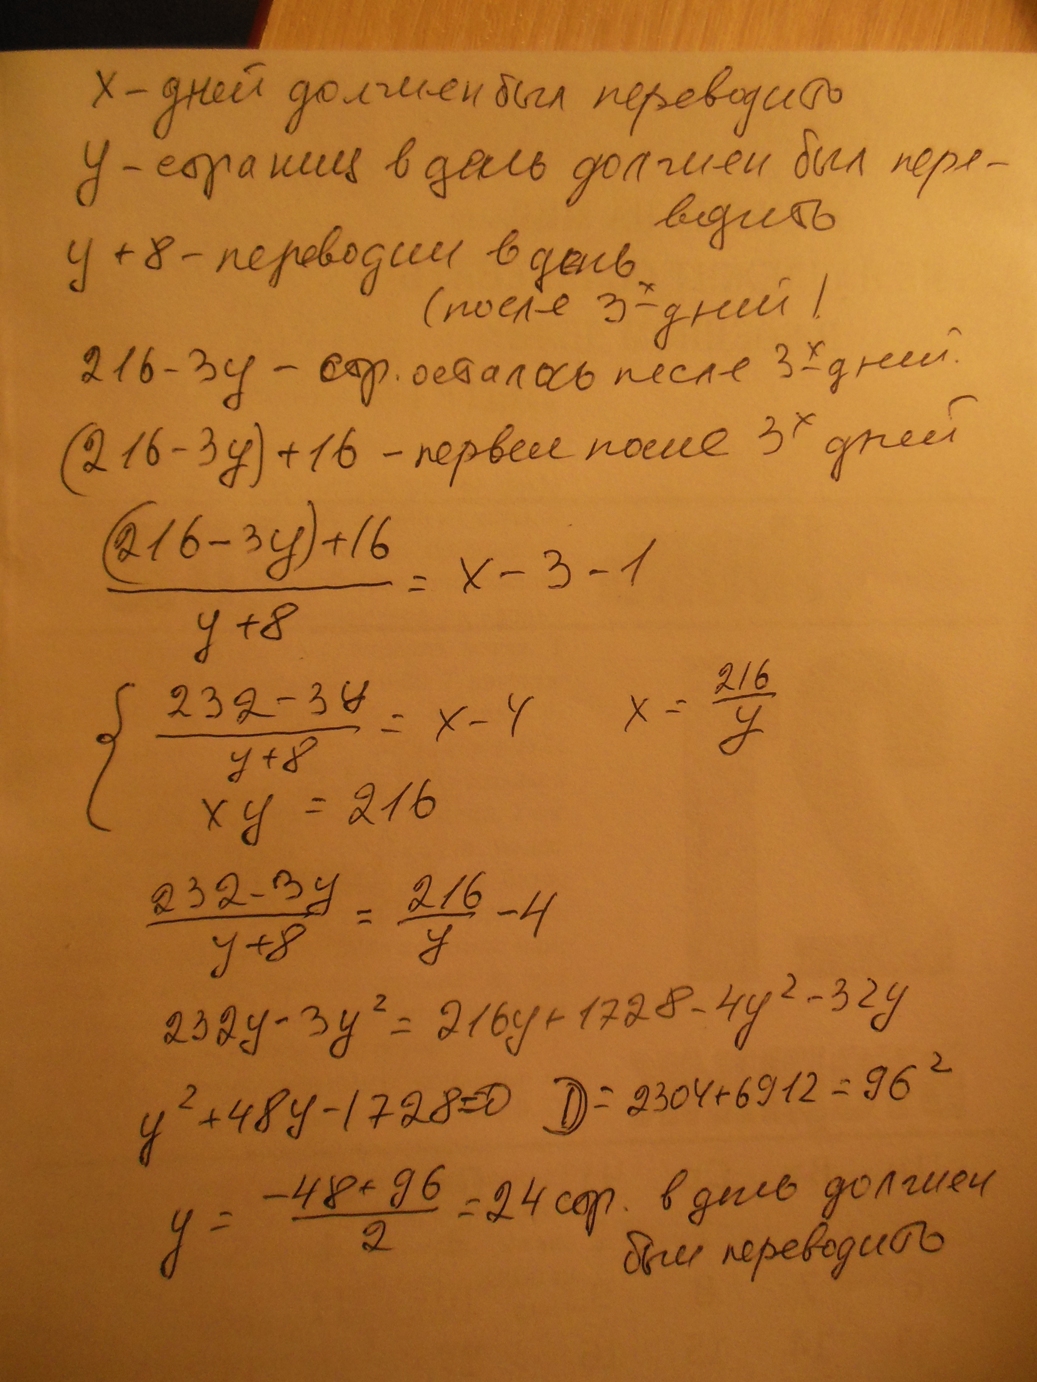 x - дней должен был переводить
y - страниц в день должен был пере-
водить
y + 8 - переводил в день
(после 3х дней!
216 - 3y - стр. осталось после 3х дней.
(216 - 3y) + 16 - перевел после 3х дней
((216 - 3y) + 16)/(y + 8) = x - 3 - 1
{ (232 - 3y)/(y + 8) = x - 4 x = 216/y
xy = 216
(232 - 3y)/(y + 8) = 216/y - 4
232y - 3y² = 216y + 1728 - 4y² - 32y
y² + 48y - 1728 = 0 D = 2304 + 6912 = 96²
y = (-48 + 96)/2 = 24 стр. в день должен
был переводить